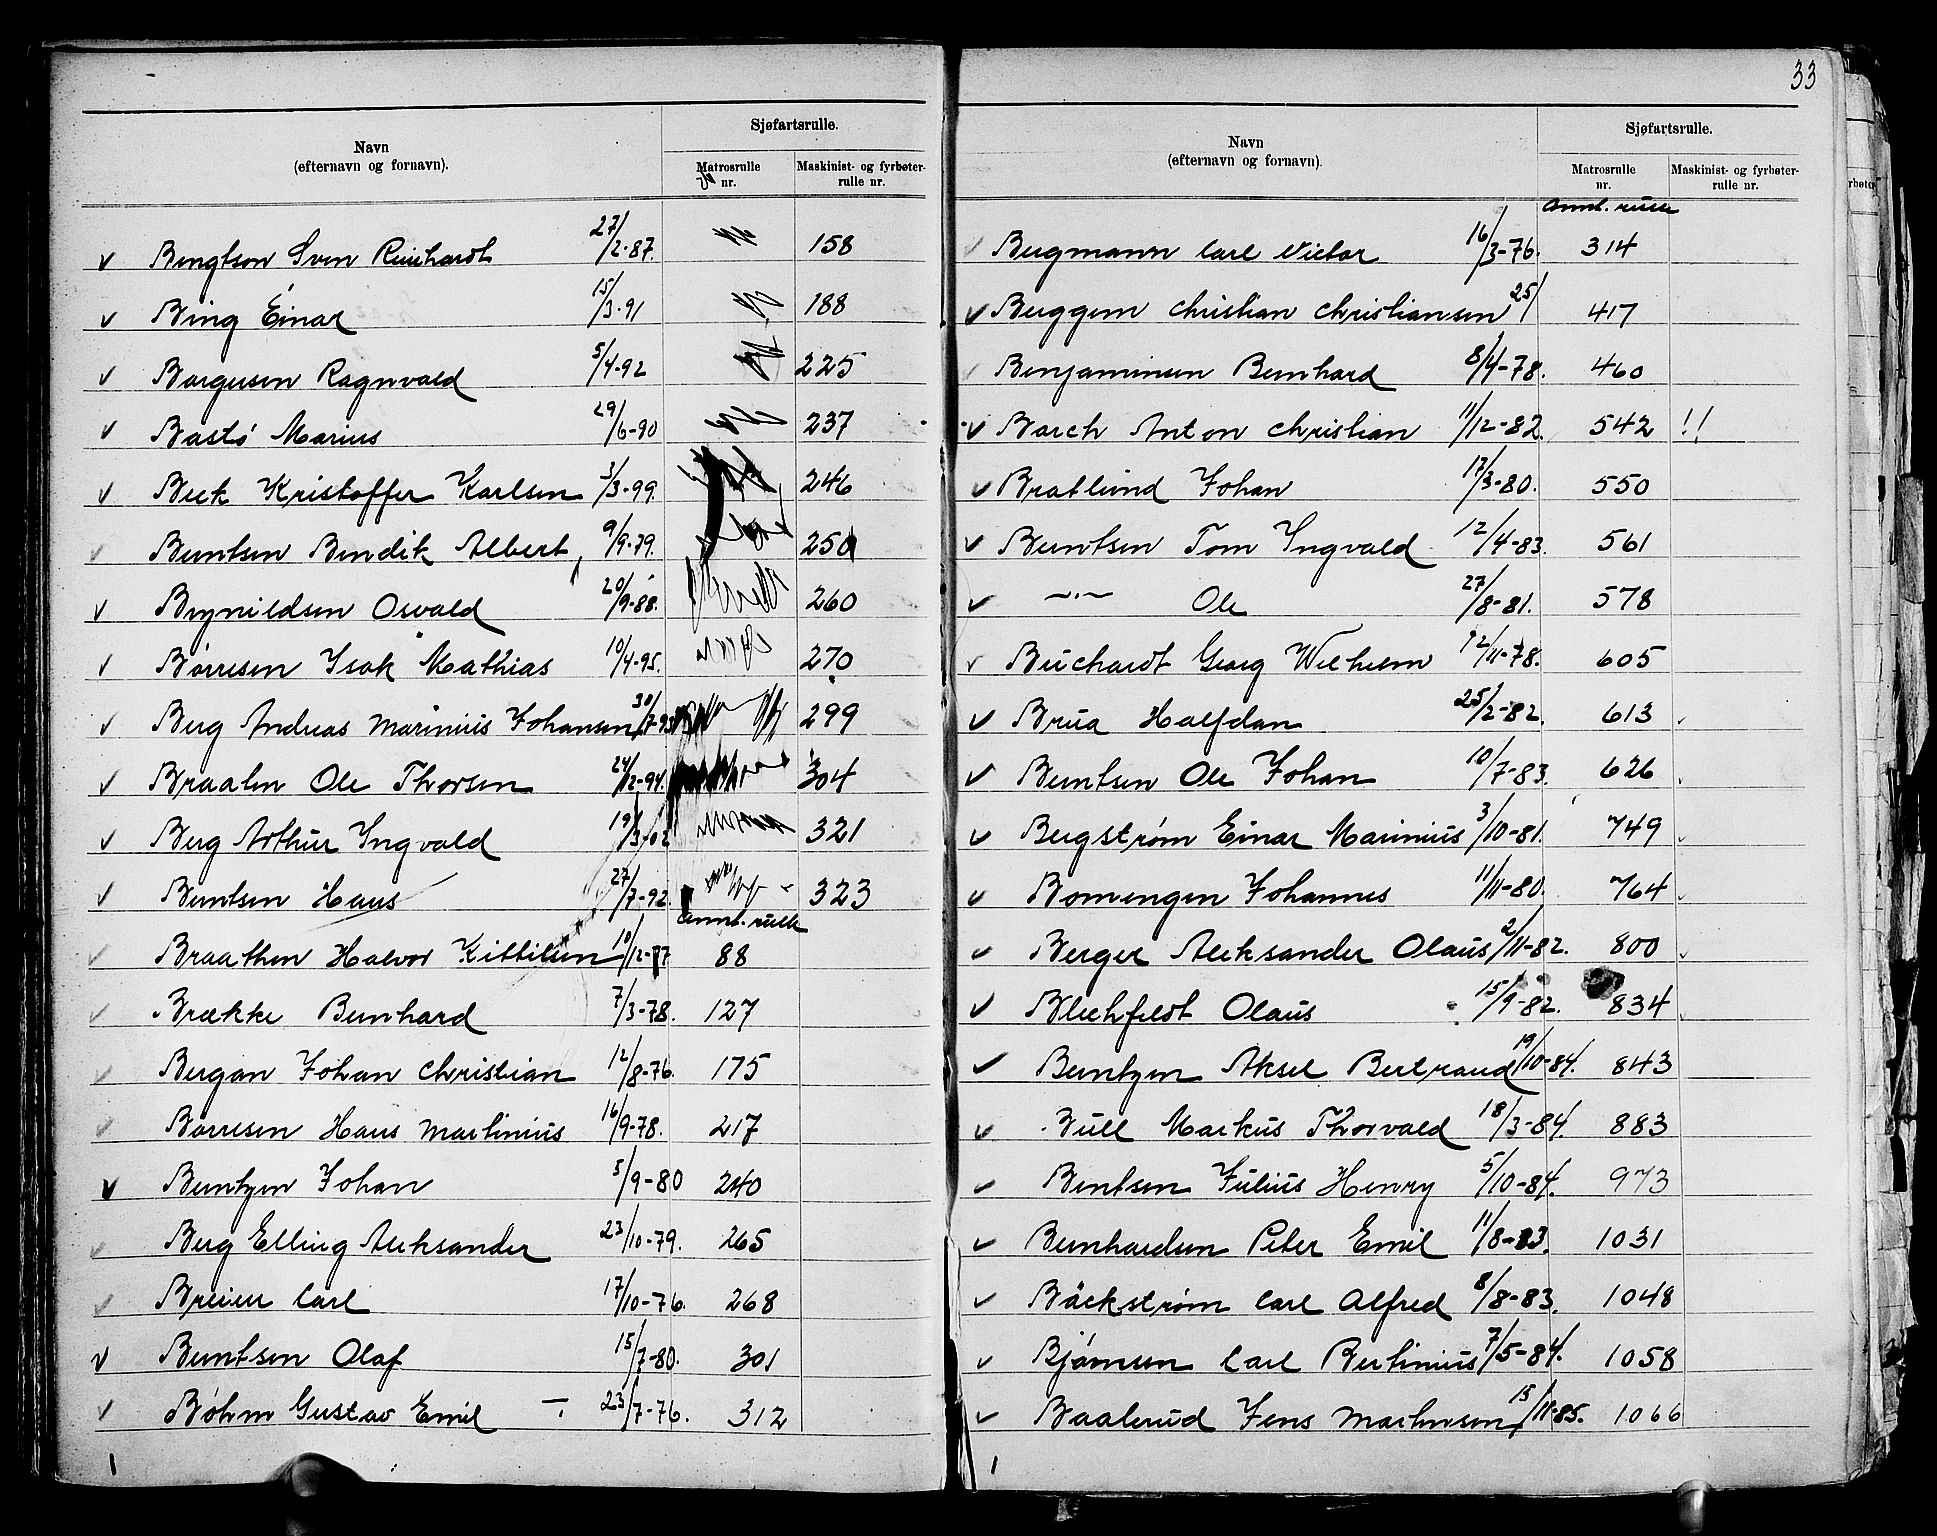 33
Sjøfartsrulle.
Navn
(efternavn og fornavn).
Matrosrulle nr.
Maskinist- og fyrbøter-rulle nr.
Bengtson Sven Reinhardt 27/2-87. 158
Bing Einar 15/3-91 188
Borgersen Ragnvald 5/4-92 225
Bastø Marius 29/6-90 237
Beck Kristoffer Karlsen 3/3-99. 246
Berntsen Bendik Albert, 9/9-79. 250
Brynildsen Osvald 20/9-88. 260
Børresen Isak Mathias 10/4-95. 270
Berg Andreas Marinius Johansen 30/7-93 299
Braaten Ole Thorsen 24/12-94. 304
Berg Arthur Ingvald 19/3-02 321
Berntsen Hans 27/7-92. 323
Annt. rulle
Braathen Halvor Kittilsen 10/12-77 88
Brække Bernhard 7/3-78. 127
Bergan Johan Christian 12/8-76. 175
Børresen Hans Martinius 16/9-78. 217
Berntzen Johan 5/9-80 240
Berg Elling Aleksander 23/10-79. 265
Breien Carl 17/10-76. 268
Berntsen Olaf 15/7-80. 301
Bøhm Gustav Emil 23/7-76. 312
1
Sjøfartsrulle.
Navn
(efternavn og fornavn).
Matrosrulle nr.
Maskinist- og fyrbøter-rulle nr.
Annt. rulle
Bergmann Carl Victor 16/3-76. 314
Berggern Christian Christiansen 25/ 417
Benjaminsen Bernhard 8/4-78. 460
Borch Anton Christian 11/12-82. 542 !!
Bratlund Johan 17/3-80. 550
Berntsen Tom Ingvald 12/4-83. 561
—"— Ole 27/8-81. 578
Buchardt Georg Wilhelm 12/11-78. 605
Brua Halfdan 25/2-82. 613
Berntsen Ole Johan 10/7-83. 626
Bergstrøm Einar Marinius 3/10-81. 749
Bomengen Johannes 11/11-80. 764
Berger Aleksander Olaus 2/11-82. 800
Blechfeldt Olaus 15/9-82. 834
Berntzen Aksel Bertrand 19/10-84. 843
Bull Markus Thorvald 18/3-84. 883
Bentsen Julius Henry 5/10-84. 973
Bernhardsen Peter Emil 11/8-83. 1031
Bäckstrøm Carl Alfred 8/8-83. 1048
Bjørnsen Carl Bertinius 7/5-84. 1058
Baalerud Jens Martinsen 15/11-85. 1066
1